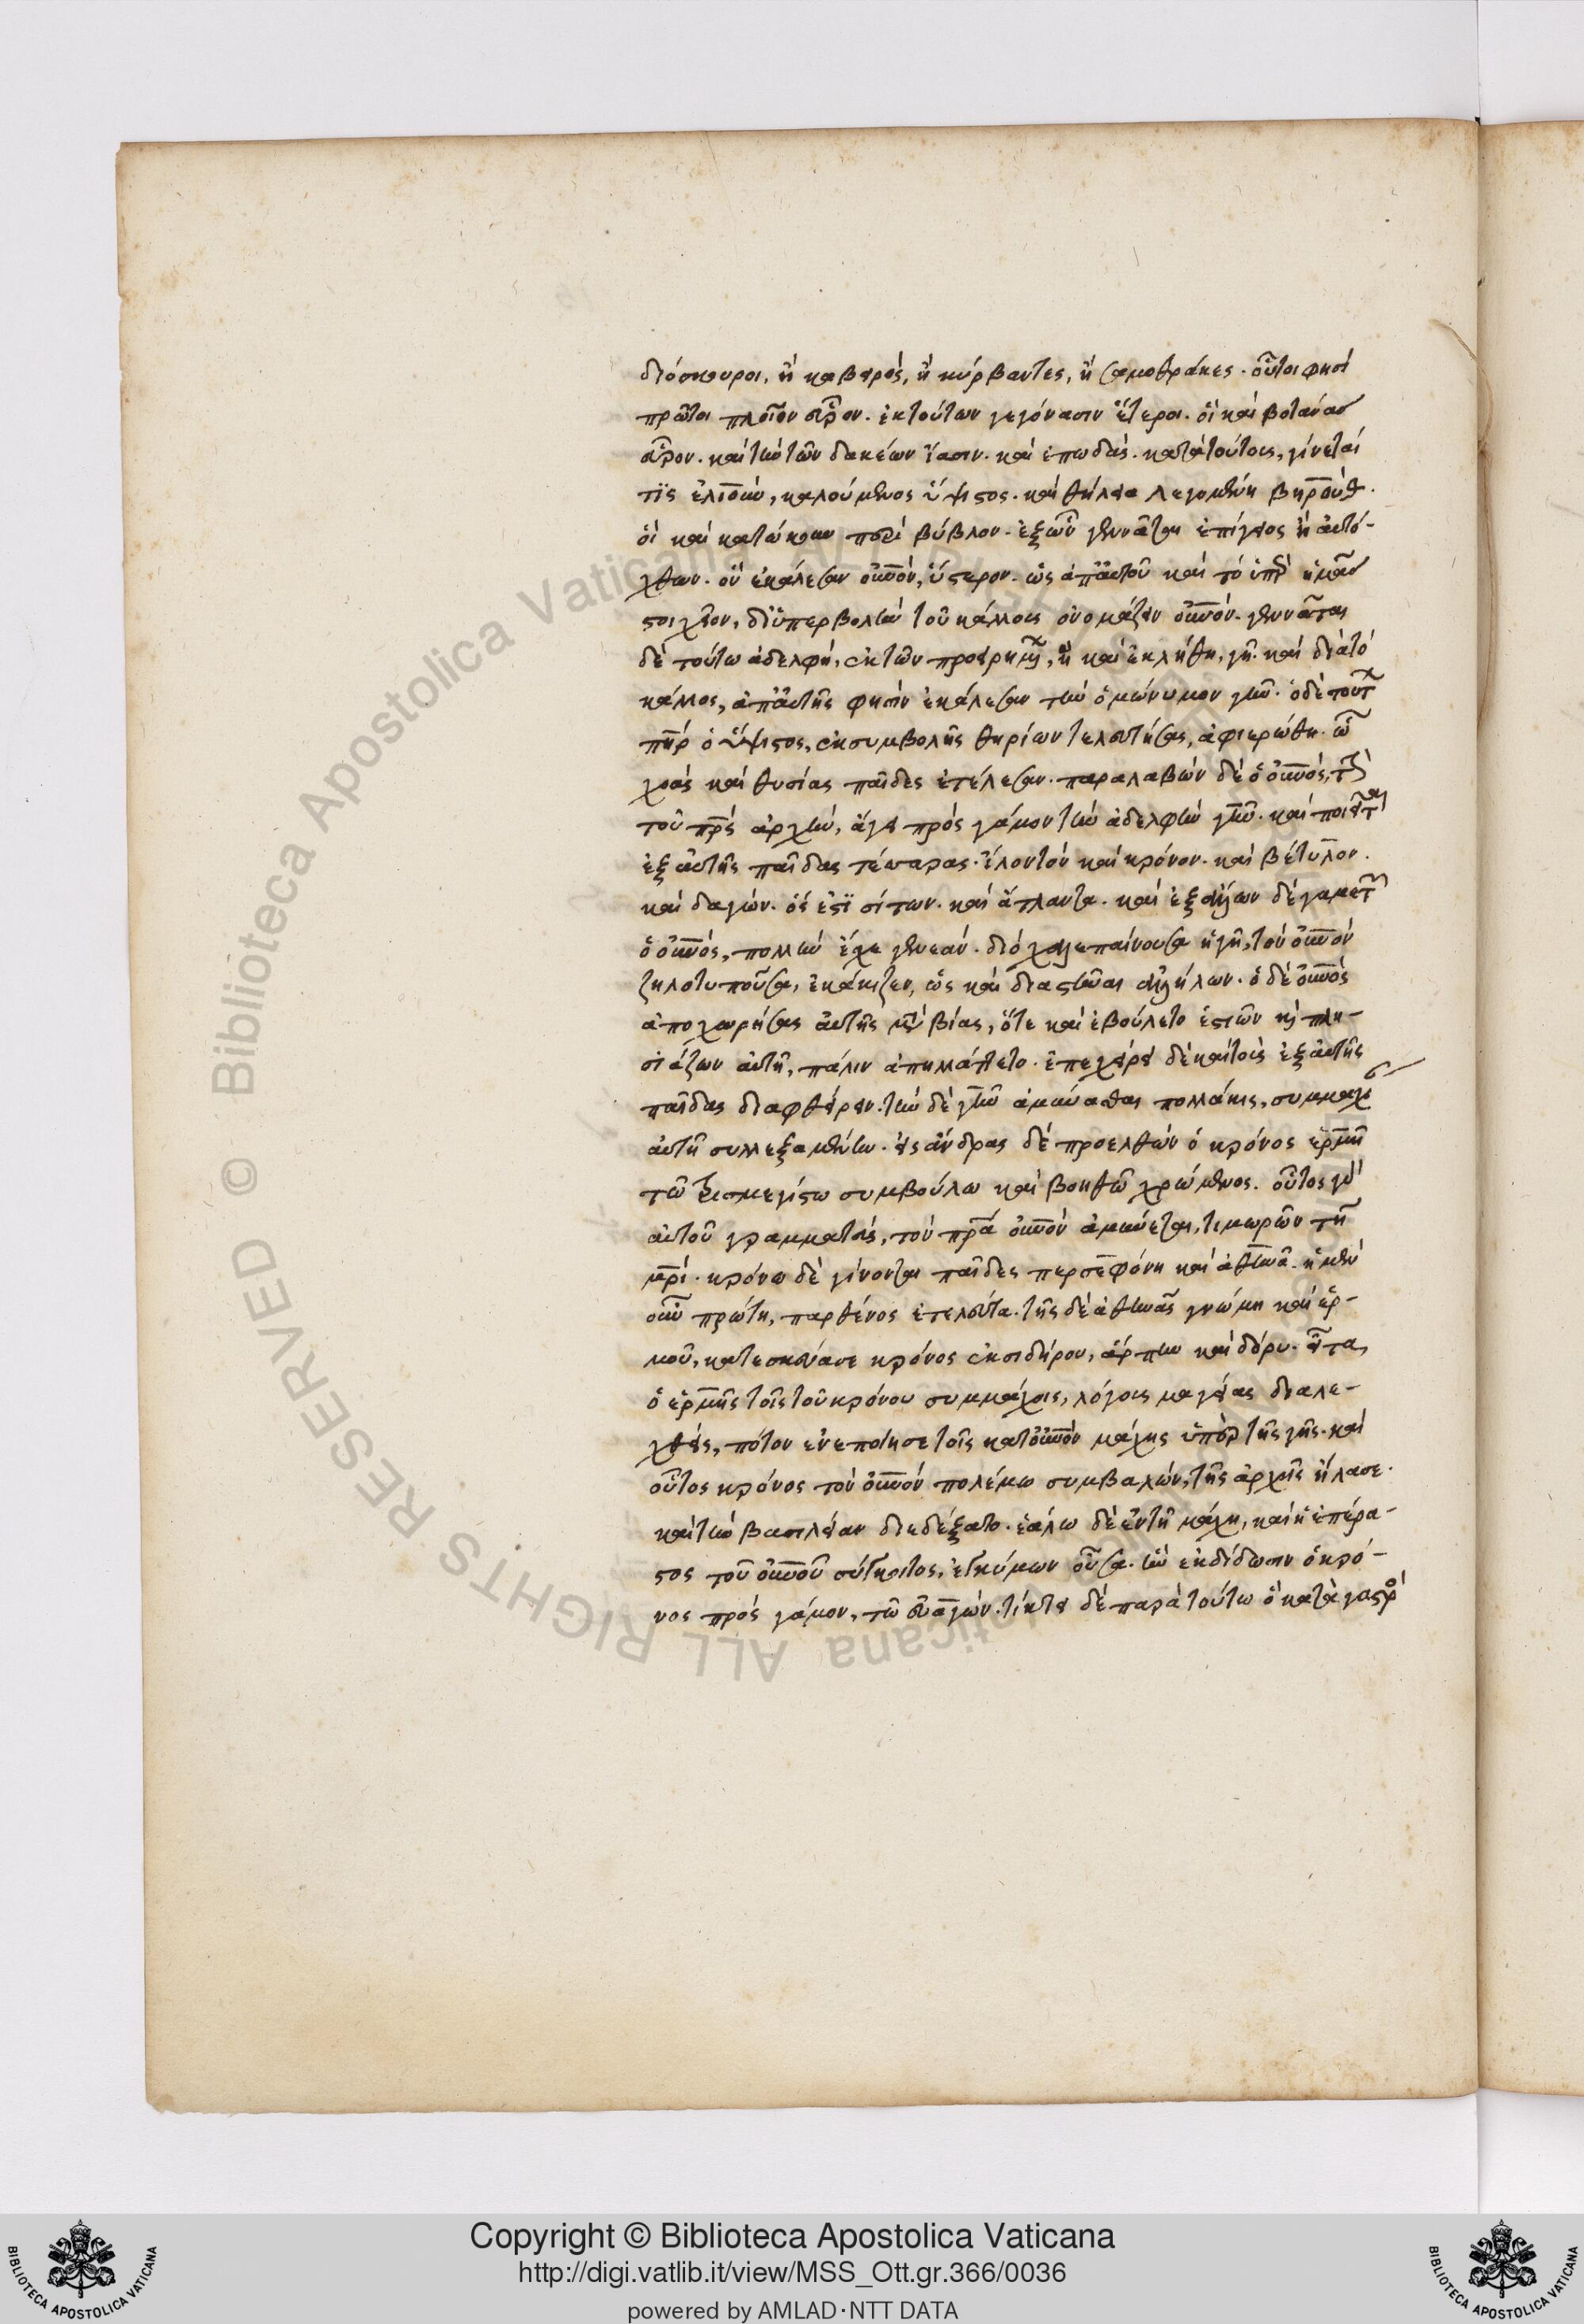 διόσκουροι, ἢ καβειροὶ, ἢ κύρβαντες, ἢ σαμοθράκες. οὗτοι φησὶ
πρῶτοι πλοῖον εὗρον. ἐκ τούτων γεγόνασιν ἕτεροι. οἳ καὶ βοτάνας
εὗρον. καὶ τὴν τῶν δακέων ἴασιν. καὶ ἐπωδάς. κατὰ τούτοις, γίνεταί
τις ἐλιοῦν, καλούμενος ὕψιστος. καὶ θήλεια λεγομένη βηρούθ.
οἳ καὶ κατώκουν περὶ βύβλον. ἐξ ὧν γεννᾶται ἐπίγειος ἢ αὐτό-
χθων. ὃν ἐκάλεσαν οὐνὸν, ὕστερον. ὡς ἀπ' αὐτοῦ καὶ τὸ ὑπὲρ ἡμᾶς
στοιχεῖον, δι' ὑπερβολὴν τοῦ κάλλους ὀνομάζειν οὐνόν. γεννᾶται
δὲ τούτω ἀδελφὴ, ἐκ τῶν προειρημ, ἣ καὶ ἐκλήθη, γῆ. καὶ διὰ τὸ
κάλλος, ἀπ' αὐτῆς φησὶν ἐκάλεσαν τὴν ὁμώνυμον γῆν. ὁ δὲ τούτ
πηρ ὁ ὕψιστος, ἐκ συμβολῆς θηρίων τελευτήσας, ἀφιερώθη. ὧ
χοὰς καὶ θυσίας παῖδες ἐτέλεσαν. παραλαβὼν δὲ ὁ οὐνὸς, τὴν
τοῦ πρς ἀρχὴν, ἄγει πρὸς γάμον τὴν ἀδελφὴν γῆν. καὶ ποιεῖται
ἐξ αὐτῆς παῖδας τέσσαρας. ἶλον τὸν καὶ κρόνον. καὶ βέτυλον.
καὶ δαγών. ὅς ἐστι σίτων. καὶ ἄτλαντα. καὶ ἐξ ἄλλων δὲ γαμετῶν
ὁ οὐνὸς, πολλὴν ἔσχε γενεάν. διὸ χαλεπαίνουσα ἡ γῆ, τὸν οὐνὸν
ζηλοτυποῦσα, ἐκάκιζεν, ὡς καὶ διαστῆναι ἀλλήλων. ὁ δὲ οὐνὸς
ἀποχωρήσας αὐτῆς μετὰ βίας, ὅτε καὶ ἐβούλετο ἐπιὼν καὶ πλη-
σιάζων αὐτῆ, πάλιν ἀπηλλάττετο. ἐπεχείρει δὲ καὶ τοὺς ἐξ αὐτῆς
παῖδας διαφθείρειν. τὴν δὲ γῆν ἀμύνασθαι πολλάκις, συμμαχί
αὐτῆ συλλεξαμένην. εἰς ἄνδρας δὲ προελθὼν ὁ κρόνος ἑρμῆ
τῶ τρισμεγίστω συμβούλω καὶ βοηθῶ χρώμενος. οὗτος γὰρ
αὐτοῦ γραμματεὺς, τὸν πρα οὐνὸν ἀμύνεται, τιμωρῶν τῆ
μρι. κρόνω δὲ γίνονται παῖδες περσεφόνη καὶ ἀθηνᾶ. ἡ μὲν
οὖν πρώτη, παρθένος ἐτελεύτα. τῆς δὲ ἀθηνᾶς γνώμη καὶ ἑρ-
μοῦ, κατεσκεύασε κρόνος ἐκ σιδήρου, ἅρπην καὶ δόρυ. εἶτα,
ὁ ἑρμῆς τοῖς τοῦ κρόνου συμμάχοις, λόγους μαγείας διαλε-
χθεὶς, πόθον ἐνεποίησε τοῖς κατ' οὐνὸν μάχης ὑπὲρ τῆς γῆς. καὶ
οὗτος κρόνος τὸν οὐνὸν πολέμω συμβαλὼν, τῆς ἀρχῆς ἤλασε.
καὶ τὴν βασιλείαν διεδέξατο. ἑάλω δὲ ἐν τῆ μάχη, καὶ ἡ ἐπέρα-
στος τοῦ οὐνοῦ σύγκοιτος, ἐγκύμων οὖσα. ἣν ἐκδίδωσιν ὁ κρό-
νος πρὸς γάμον, τῶ δαγών. τίκτει δὲ παρὰ τούτω ὃ κατὰ γαστρὸς
Copyright © Biblioteca Apostolica Vaticana
http://digi.vatlib.it/view/MSS_Ott.gr.366/0036
powered by AMLAD·NTT DATA